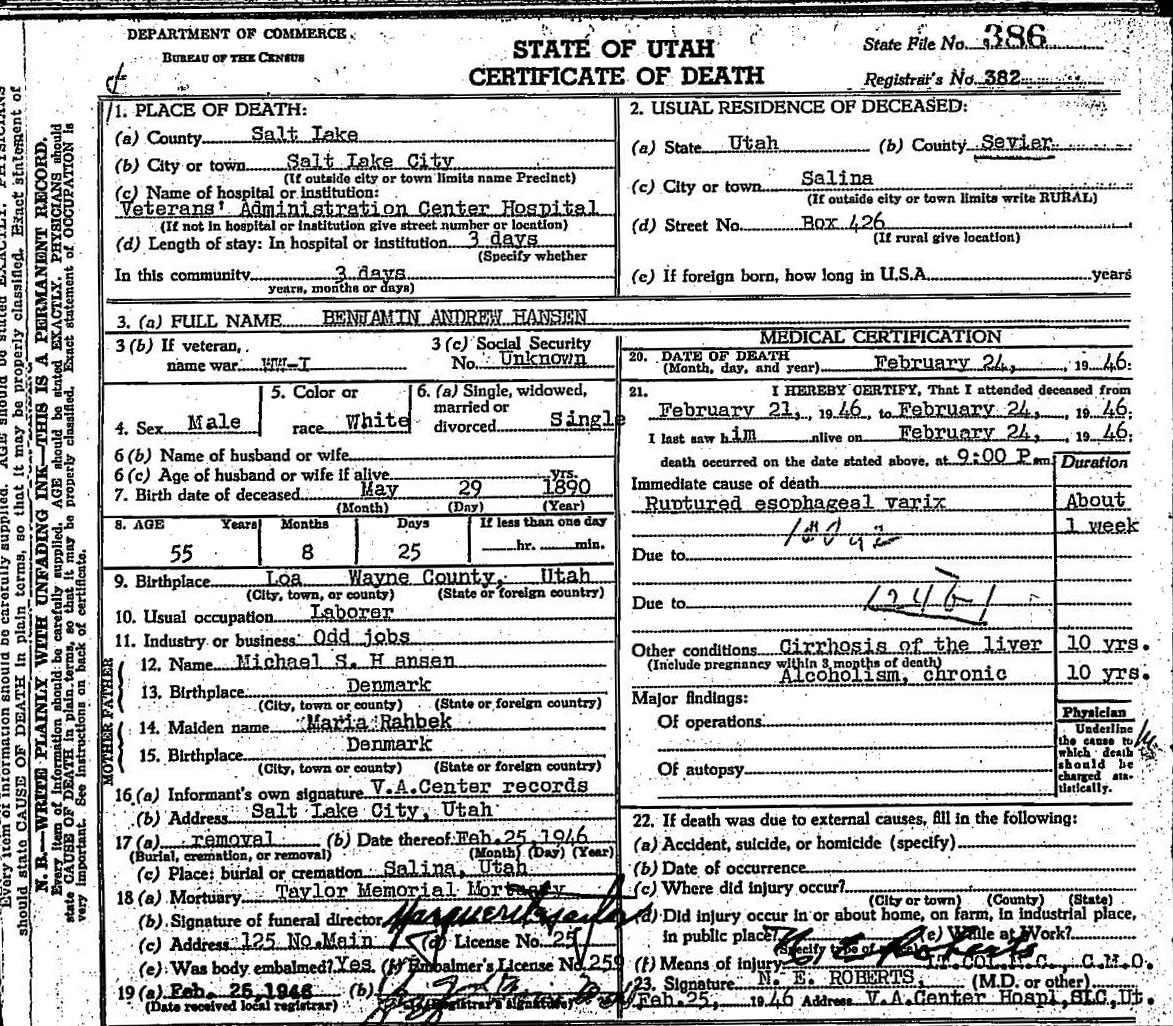 DEPARTMENT OF COMMERCE
BUREAU OF THE CENSUS
STATE OF UTAH
CERTIFICATE OF DEATH
State File No. 386
Registrar's No. 382
1. PLACE OF DEATH:
(a) County Salt Lake
(b) City or town Salt Lake City
(If outside city or town limits name Precinct)
(c) Name of hospital or institution:
Veterans' Administration Center Hospital
(If not in hospital or institution give street number or location)
(d) Length of stay: In hospital or institution 3 days
(Specify whether
In this community 3 days
years, months or days)
2. USUAL RESIDENCE OF DECEASED:
(a) State Utah (b) County Sevier
(c) City or town Salina
(If outside city or town limits write RURAL)
(d) Street No. Box 426
(If rural give location)
(e) If foreign born, how long in U.S.A. years
3. (a) FULL NAME BENJAMIN ANDREW HANSEN
3 (b) If veteran,
name war WW-I
3 (c) Social Security
No. Unknown
4. Sex Male
5. Color or
race White
6. (a) Single, widowed,
married or
divorced Single
6 (b) Name of husband or wife
6 (c) Age of husband or wife if alive yrs.
7. Birth date of deceased May 29 1890
(Month) (Day) (Year)
8. AGE Years Months Days If less than one day
55 8 25 hr. min.
9. Birthplace Loa Wayne County, Utah
(City, town, or county) (State or foreign country)
10. Usual occupation Laborer
11. Industry or business Odd jobs
FATHER
12. Name Michael S. H ansen
13. Birthplace Denmark
(City, town or county) (State or foreign country)
MOTHER
14. Maiden name Maria Rahbek
15. Birthplace Denmark
(City, town or county) (State or foreign country)
16 (a) Informant's own signature V.A.Center records
(b) Address Salt Lake City, Utah
17 (a) removal (b) Date thereof Feb.25,1946
(Burial, cremation, or removal) (Month) (Day) (Year)
(c) Place: burial or cremation Salina, Utah
18 (a) Mortuary Taylor Memorial Mortuary
(b) Signature of funeral director Marguerite Taylor
(c) Address 125 No.Main (d) License No. 25
(e) Was body embalmed? Yes (f) Embalmer's License No. 259
19 (a) Feb. 25, 1946 (b)
(Date received local registrar) (Registrar's signature)
MEDICAL CERTIFICATION
20. DATE OF DEATH
(Month, day, and year) February 24, 19 46.
21. I HEREBY CERTIFY, That I attended deceased from
February 21, 1946, to February 24, 19 46;
I last saw him alive on February 24, 19 46;
death occurred on the date stated above, at 9:00 P.m. Duration
Immediate cause of death
Ruptured esophageal varix About
1 week
Due to
Due to
Other conditions Cirrhosis of the liver 10 yrs.
(Include pregnancy within 3 months of death)
Alcoholism, chronic 10 yrs.
Major findings:
Of operations
Of autopsy
Physician
Underline
the cause to
which death
should be
charged sta-
tistically.
22. If death was due to external causes, fill in the following:
(a) Accident, suicide, or homicide (specify)
(b) Date of occurrence
(c) Where did injury occur?
(City or town) (County) (State)
(d) Did injury occur in or about home, on farm, in industrial place,
in public place? (e) While at Work?
(f) Means of injury
N. E. Roberts
Lt.Col.M.C., C.M.O.
23. Signature N. E. ROBERTS, (M.D. or other)
Feb.25, 1946 Address V.A.Center Hospl,SLC,Ut.
N. B.—WRITE PLAINLY WITH UNFADING INK—THIS IS A PERMANENT RECORD.
Every item of information should be carefully supplied. AGE should be stated EXACTLY. PHYSICIANS should
state CAUSE OF DEATH in plain terms, so that it may be properly classified. Exact statement of OCCUPATION is
very important. See instructions on back of certificate.
Every item of information should be carefully supplied. AGE should be stated EXACTLY. PHYSICIANS
should state CAUSE OF DEATH in plain terms, so that it may be properly classified. Exact statement of